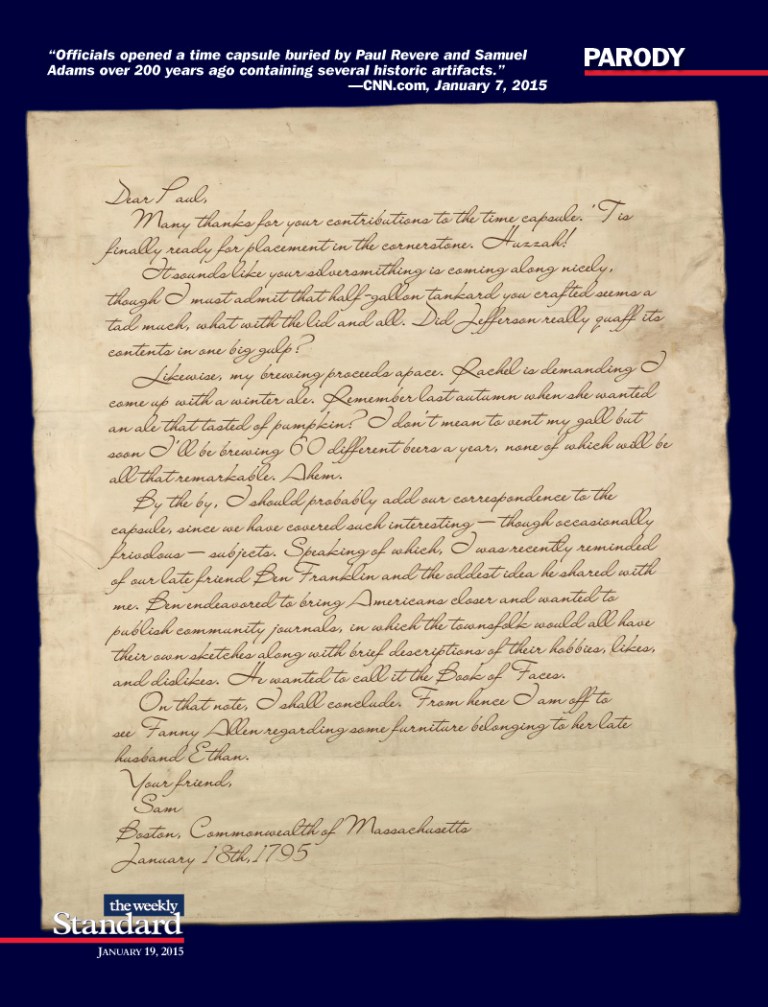 “Officials opened a time capsule buried by Paul Revere and Samuel
Adams over 200 years ago containing several historic artifacts.”
—CNN.com, January 7, 2015
PARODY
Dear Paul,
Many thanks for your contributions to the time capsule. 'Tis
finally ready for placement in the cornerstone. Huzzah!
It sounds like your silversmithing is coming along nicely,
though I must admit that half-gallon tankard you crafted seems a
tad much, what with the lid and all. Did Jefferson really quaff its
contents in one big gulp?
Likewise, my brewing proceeds apace. Rachel is demanding I
come up with a winter ale. Remember last autumn when she wanted
an ale that tasted of pumpkin? I don't mean to vent my gall but
soon I'll be brewing 60 different beers a year, none of which will be
all that remarkable. Ahem.
By the by, I should probably add our correspondence to the
capsule, since we have covered such interesting — though occasionally
frivolous — subjects. Speaking of which, I was recently reminded
of our late friend Ben Franklin and the oddest idea he shared with
me. Ben endeavored to bring Americans closer and wanted to
publish community journals, in which the townsfolk would all have
their own sketches along with brief descriptions of their hobbies, likes,
and dislikes. He wanted to call it the Book of Faces.
On that note, I shall conclude. From hence I am off to
see Fanny Allen regarding some furniture belonging to her late
husband Ethan.
Your friend,
Sam
Boston, Commonwealth of Massachusetts
January 18th, 1795
the weekly
Standard
JANUARY 19, 2015